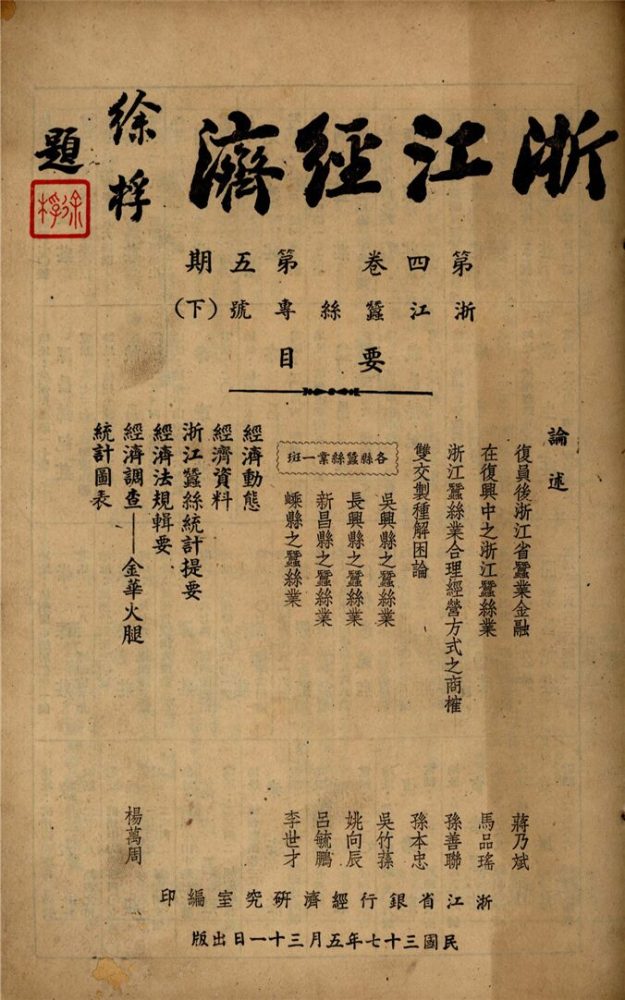 浙江經濟
徐桴
題
徐桴
第四卷第五期
浙江蠶絲專號(下)
要目
論述
復員後浙江省蠶業金融 蔣乃斌
在復興中之浙江蠶絲業 馬品瑤
浙江蠶絲業合理經營方式之商榷 孫善聯
雙交製種解困論 孫本忠
各縣蠶絲業一斑
吳興縣之蠶絲業 吳竹蓀
長興縣之蠶絲業 姚向辰
新昌縣之蠶絲業 呂毓鵬
嵊縣之蠶絲業 李世才
經濟動態
經濟資料
浙江蠶絲統計提要
經濟法規輯要
經濟調查——金華火腿 楊萬周
統計圖表
浙江省銀行經濟研究室編印
民國三十七年五月三十一日出版